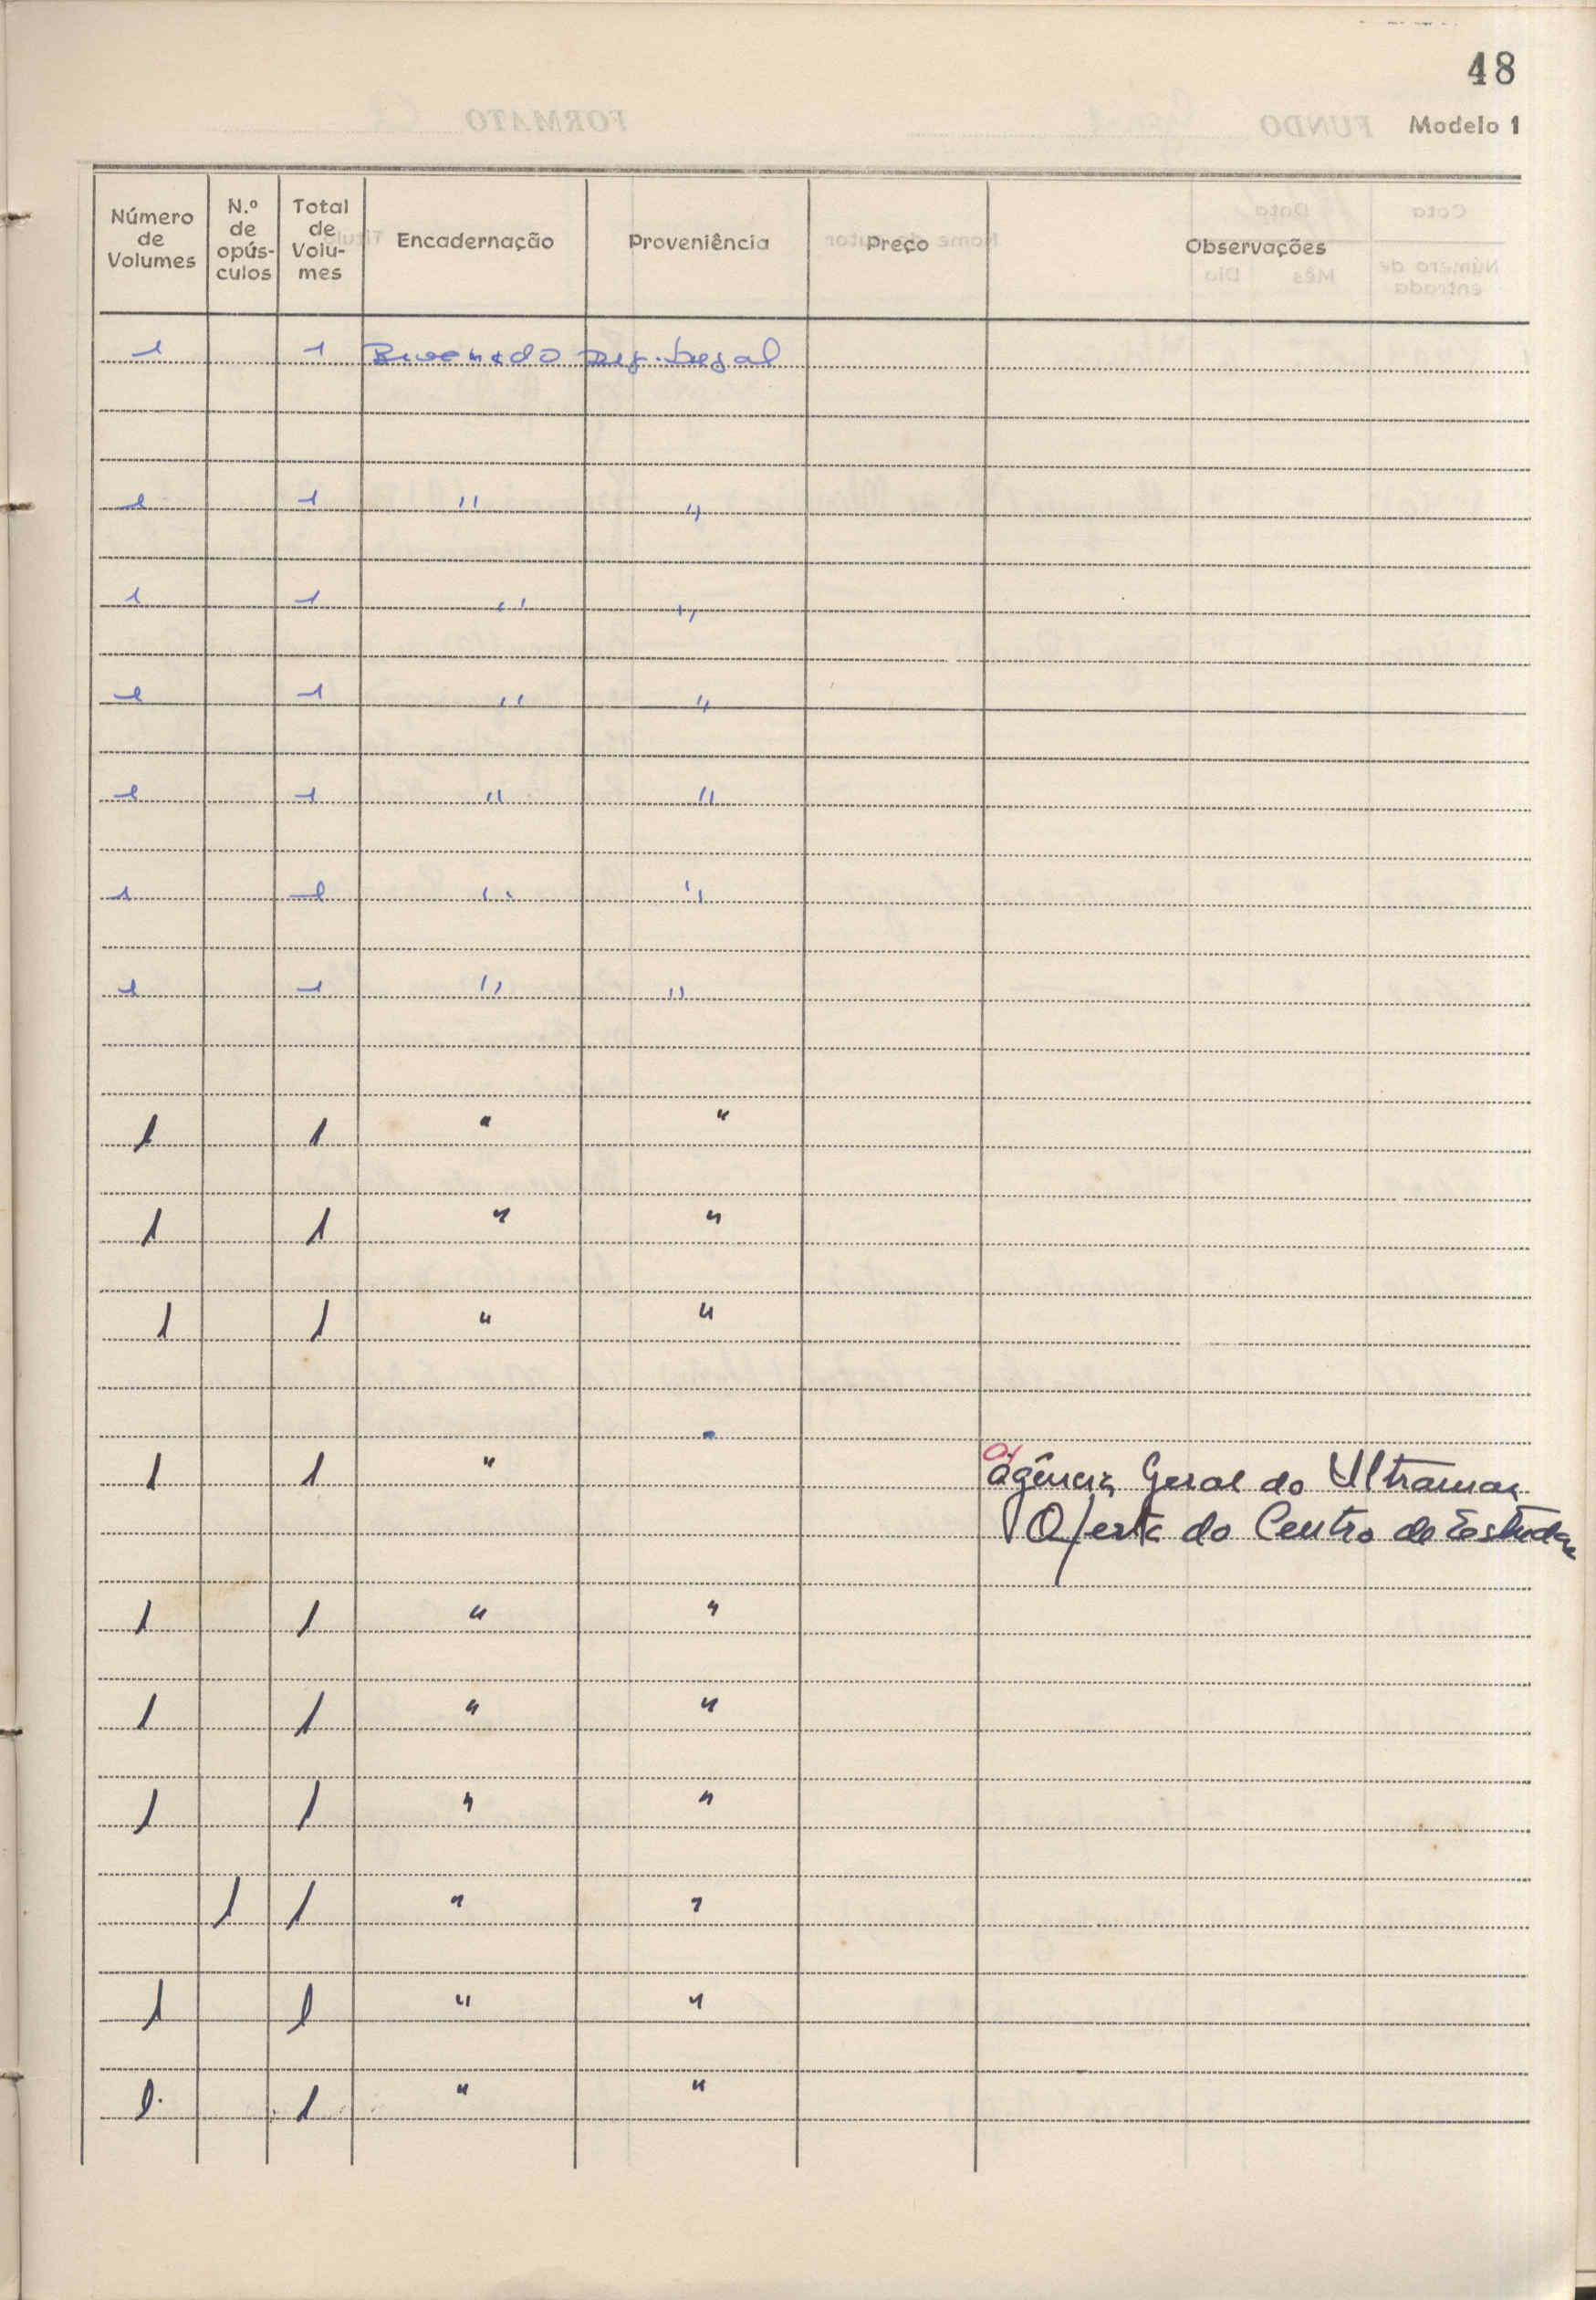 48
Modelo 1
Número de Volumes | N.º de opús-culos | Total de Volu-mes | Encadernação | Proveniência | Preço | Observações
1 1 Brochado Dep. Legal
1 1 " "
1 1 " "
1 1 " "
1 1 " "
1 1 " "
1 1 " "
1 1 " "
1 1 " "
1 1 " "
1 1 " Agência Geral do Ultramar
Oferta do Centro de Estudos
1 1 " "
1 1 " "
1 1 " "
1 1 " "
1 1 " "
1 1 " "